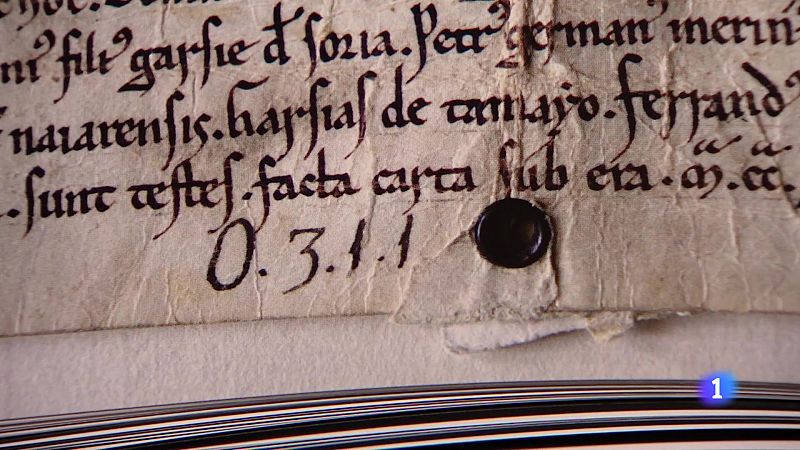 filiꝰ garsie đ soria. Petrꝰ germanꝰ merin
naiarensis. Garsias de tamayo. ferrandꝰ
. sunt testes. facta carta sub era. m̃. cc̃.
O. 3. 1. 1
1